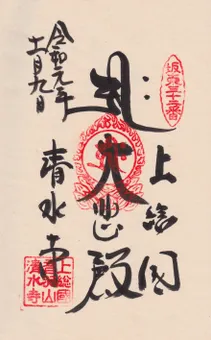 坂東三十二番
上総国
大悲殿
清水寺
令和元年
十一月九日
上総國
音羽山
清水寺